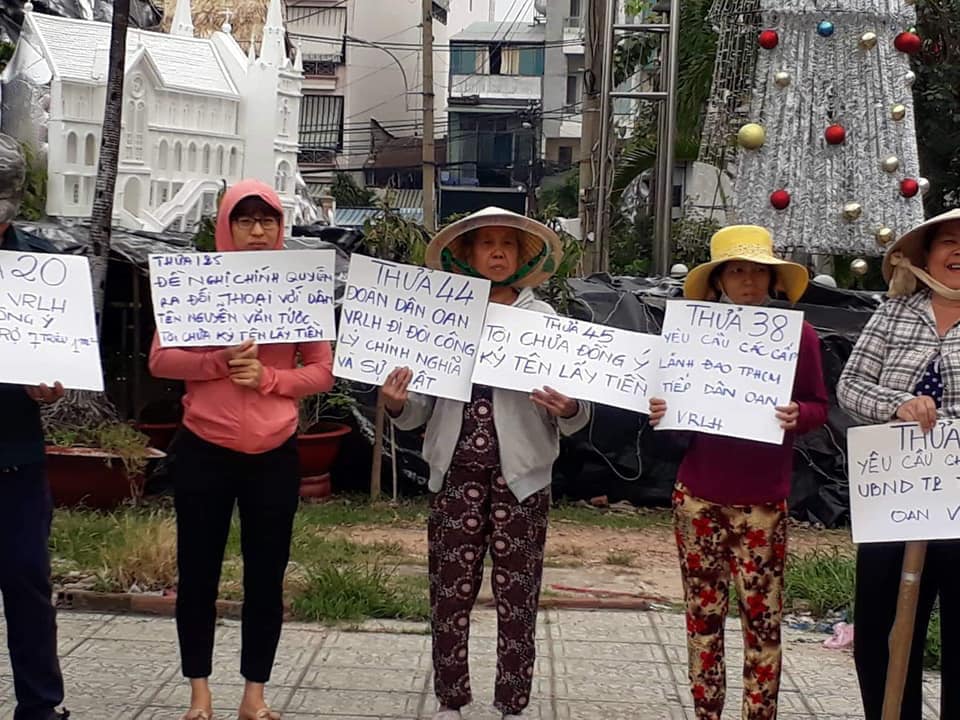 20
VRLH
THỬA 185
ĐỀ NGHỊ CHÍNH QUYỀN
RA ĐỐI THOẠI VỚI DÂN
TÊN NGUYỄN VĂN TƯỚC
TÔI CHƯA KÝ TÊN LẤY TIỀN
THỬA 44
ĐOÀN DÂN OAN
VRLH ĐI ĐÒI CÔNG
LÝ CHÍNH NGHĨA
VÀ SỰ
THỬA 45
TÔI CHƯA ĐỒNG Ý
KÝ TÊN LẤY TIỀN
THỬA 38
YÊU CẦU CÁC CẤP
LÃNH ĐẠO TPHCM
TIẾP DÂN OAN
VRLH
THỬA
YÊU CẦU
UBND TP
OAN